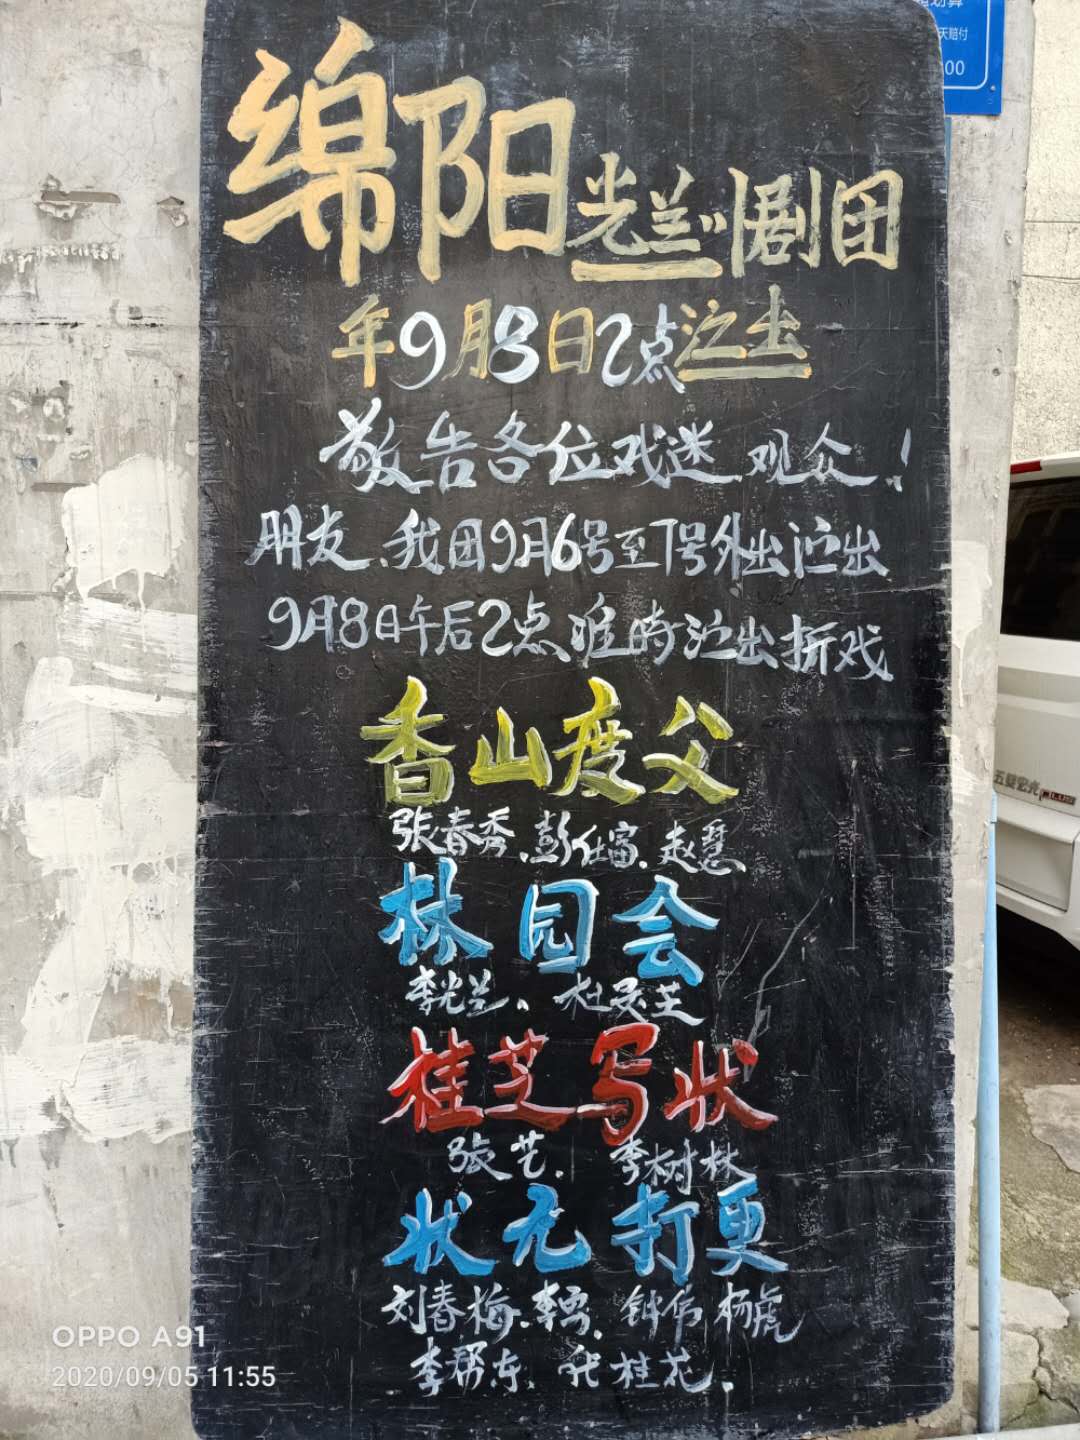 划算
天赔付
00
绵阳光兰川剧团
年9月8日2点演出
敬告各位戏迷.观众!
朋友、我团9月6号至7号外出演出
9月8日午后2点准时演出折戏
香山度父
张春秀、彭仕富、赵慧
林园会
李光兰、杜灵芝
桂芝写状
张艺、李树林
状元打更
刘春梅、李、钟伟 杨虎
李帮东、代桂花.
五菱宏光
OPPO A91
2020/09/05 11:55